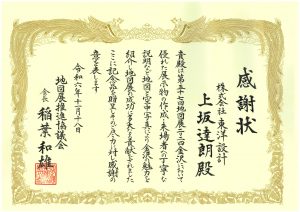 感謝状
株式会社 東洋設計
上坂達朗殿
貴殿は第五十一回地図展二〇二三金沢において
優れた展示物の作成と来場者への丁寧な
説明など地図と空中写真による金沢の魅力を
紹介し地図展の成功に多大な貢献をされました
ここに記念品を贈呈しそのご尽力に対し感謝の
意を表します
令和六年十二月十八日
地図展推進協議会
会長 稲葉和雄